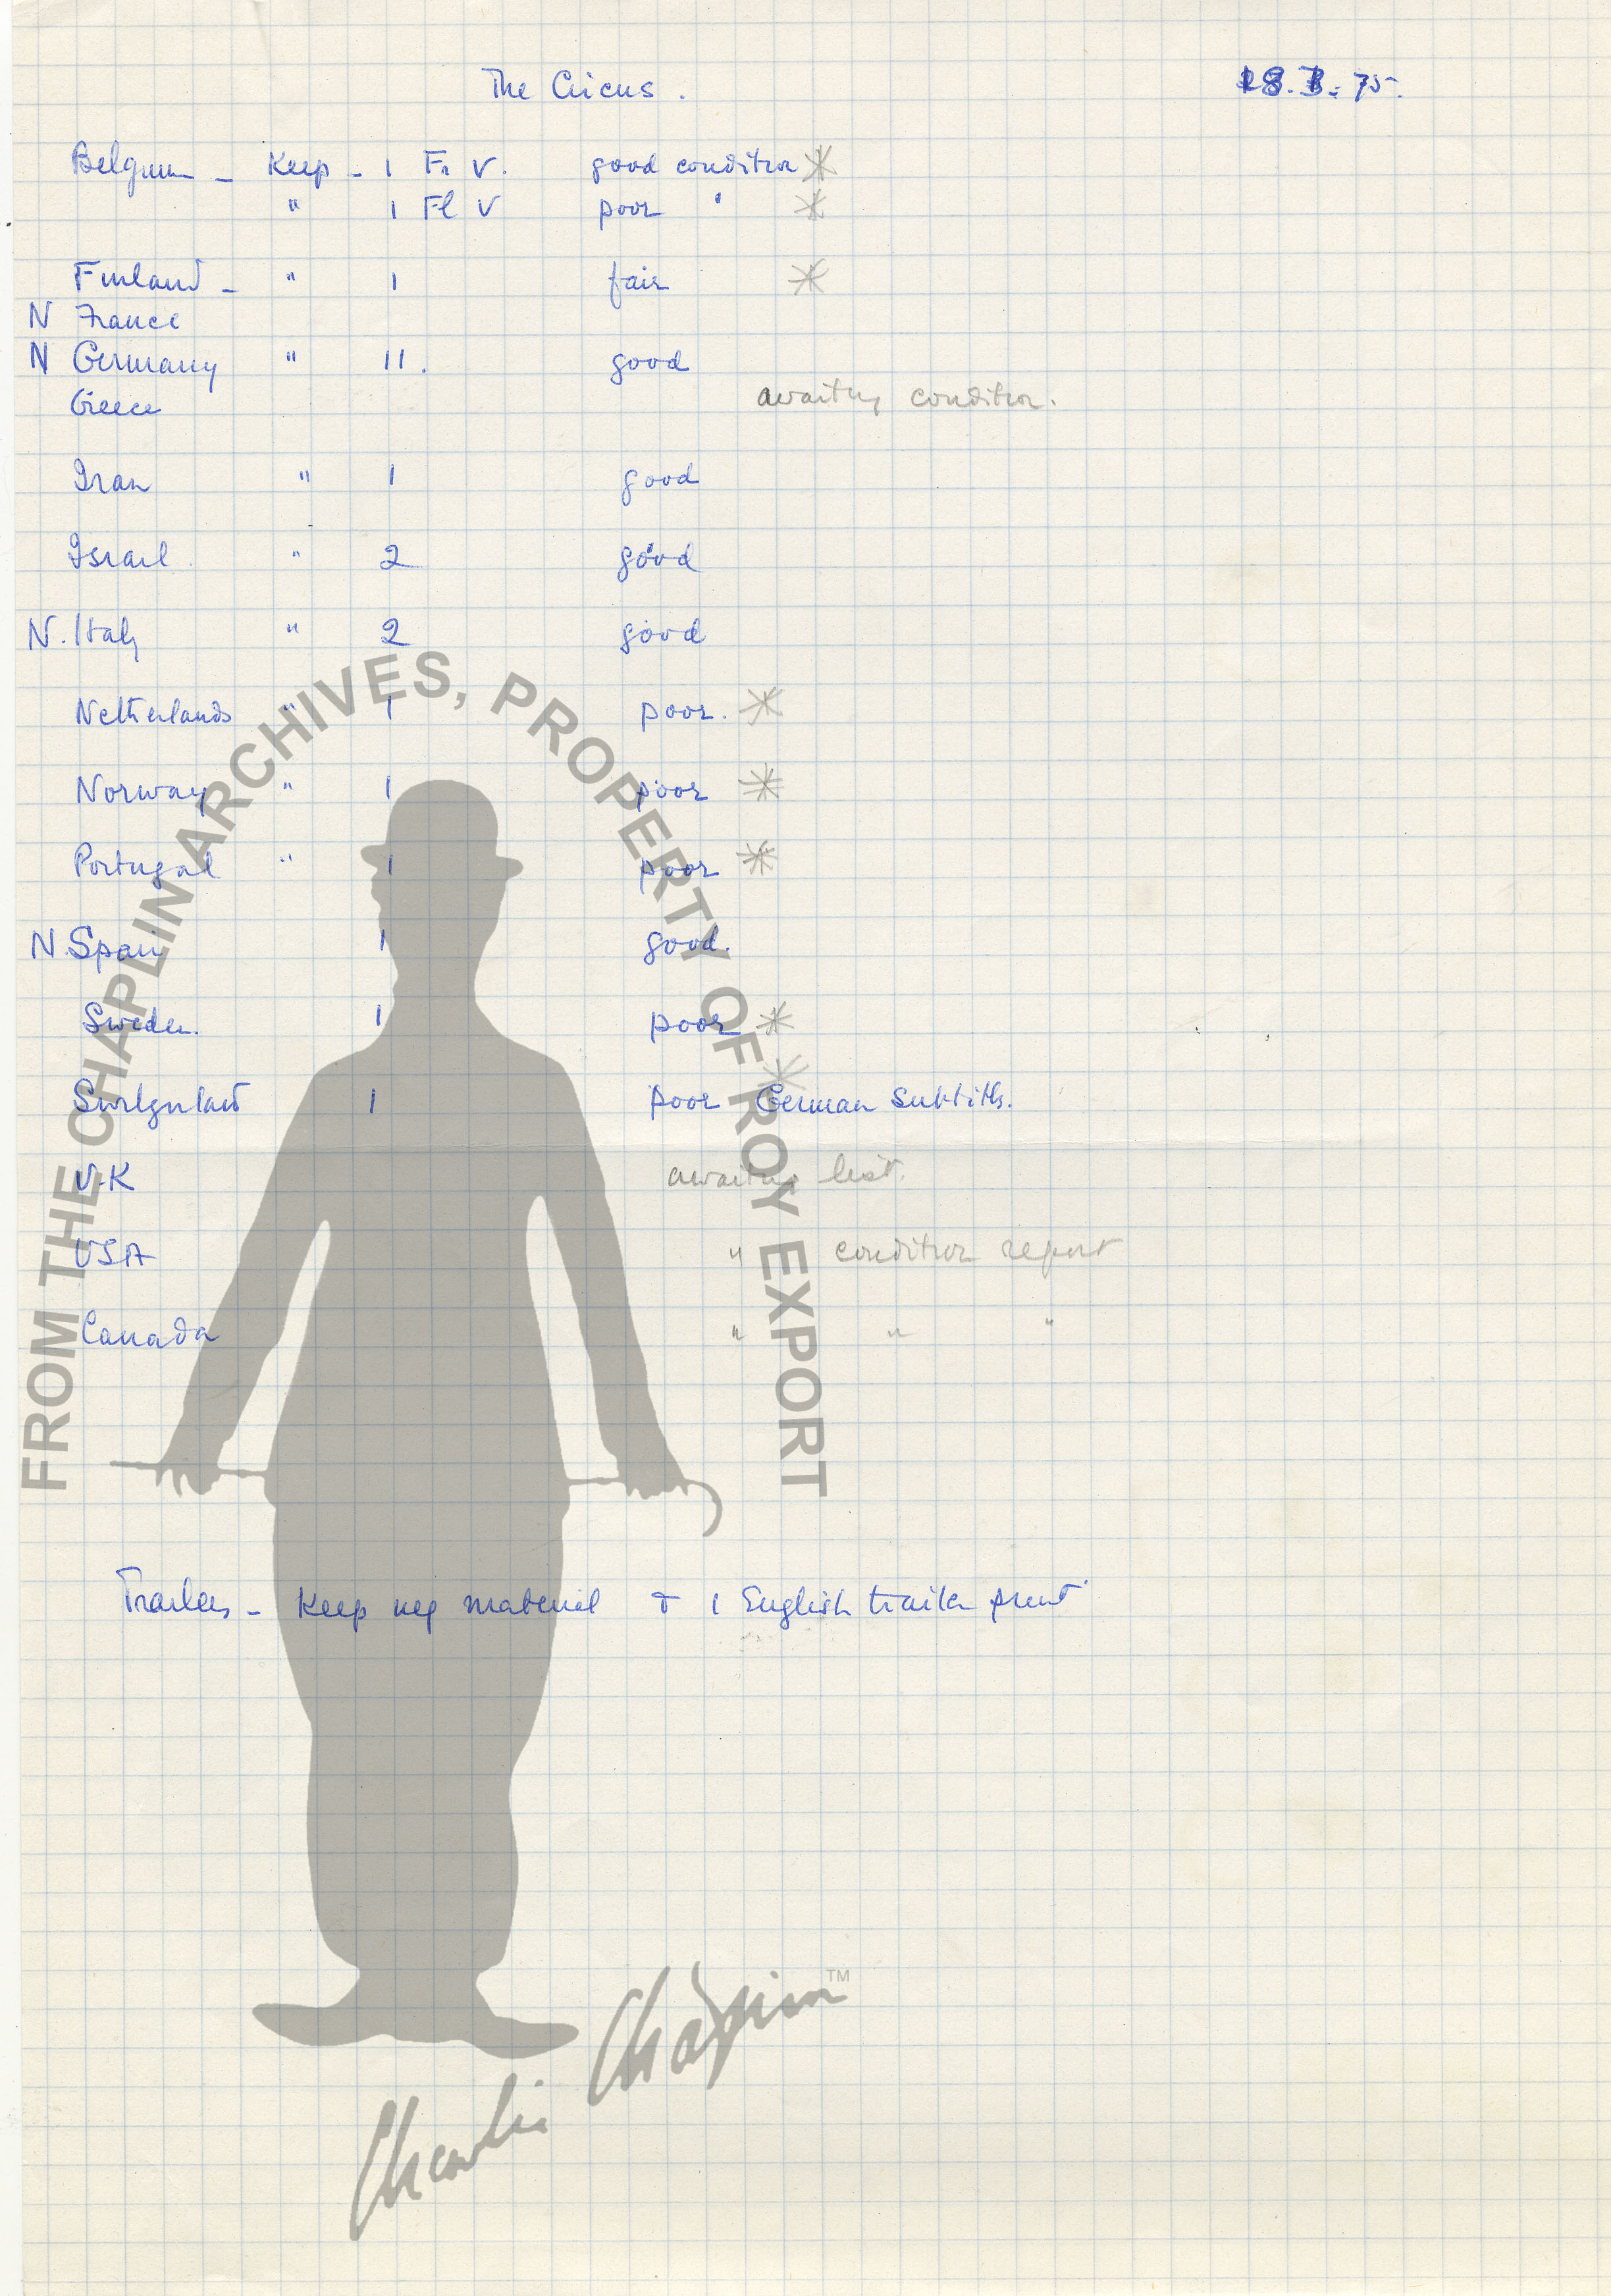 The Circus.
18.3.75.
Belgium - Keep - 1 Fr V. good condition *
" 1 Fl V poor " *
Finland - " 1 fair *
N France
N Germany " 11. good
Greece awaiting condition.
Iran " 1 good
Israel " 2 good
N. Italy " 2 good
Netherlands " 1 poor. *
Norway " 1 poor *
Portugal " 1 poor *
N Spain 1 good.
Sweden. 1 poor *
Switzerland 1 poor German subtitles. *
U.K awaiting list.
USA " condition report
Canada " " "
Trailers - Keep neg material & 1 English trailer print
FROM THE CHAPLIN ARCHIVES, PROPERTY OF ROY EXPORT
Charlie Chaplin TM